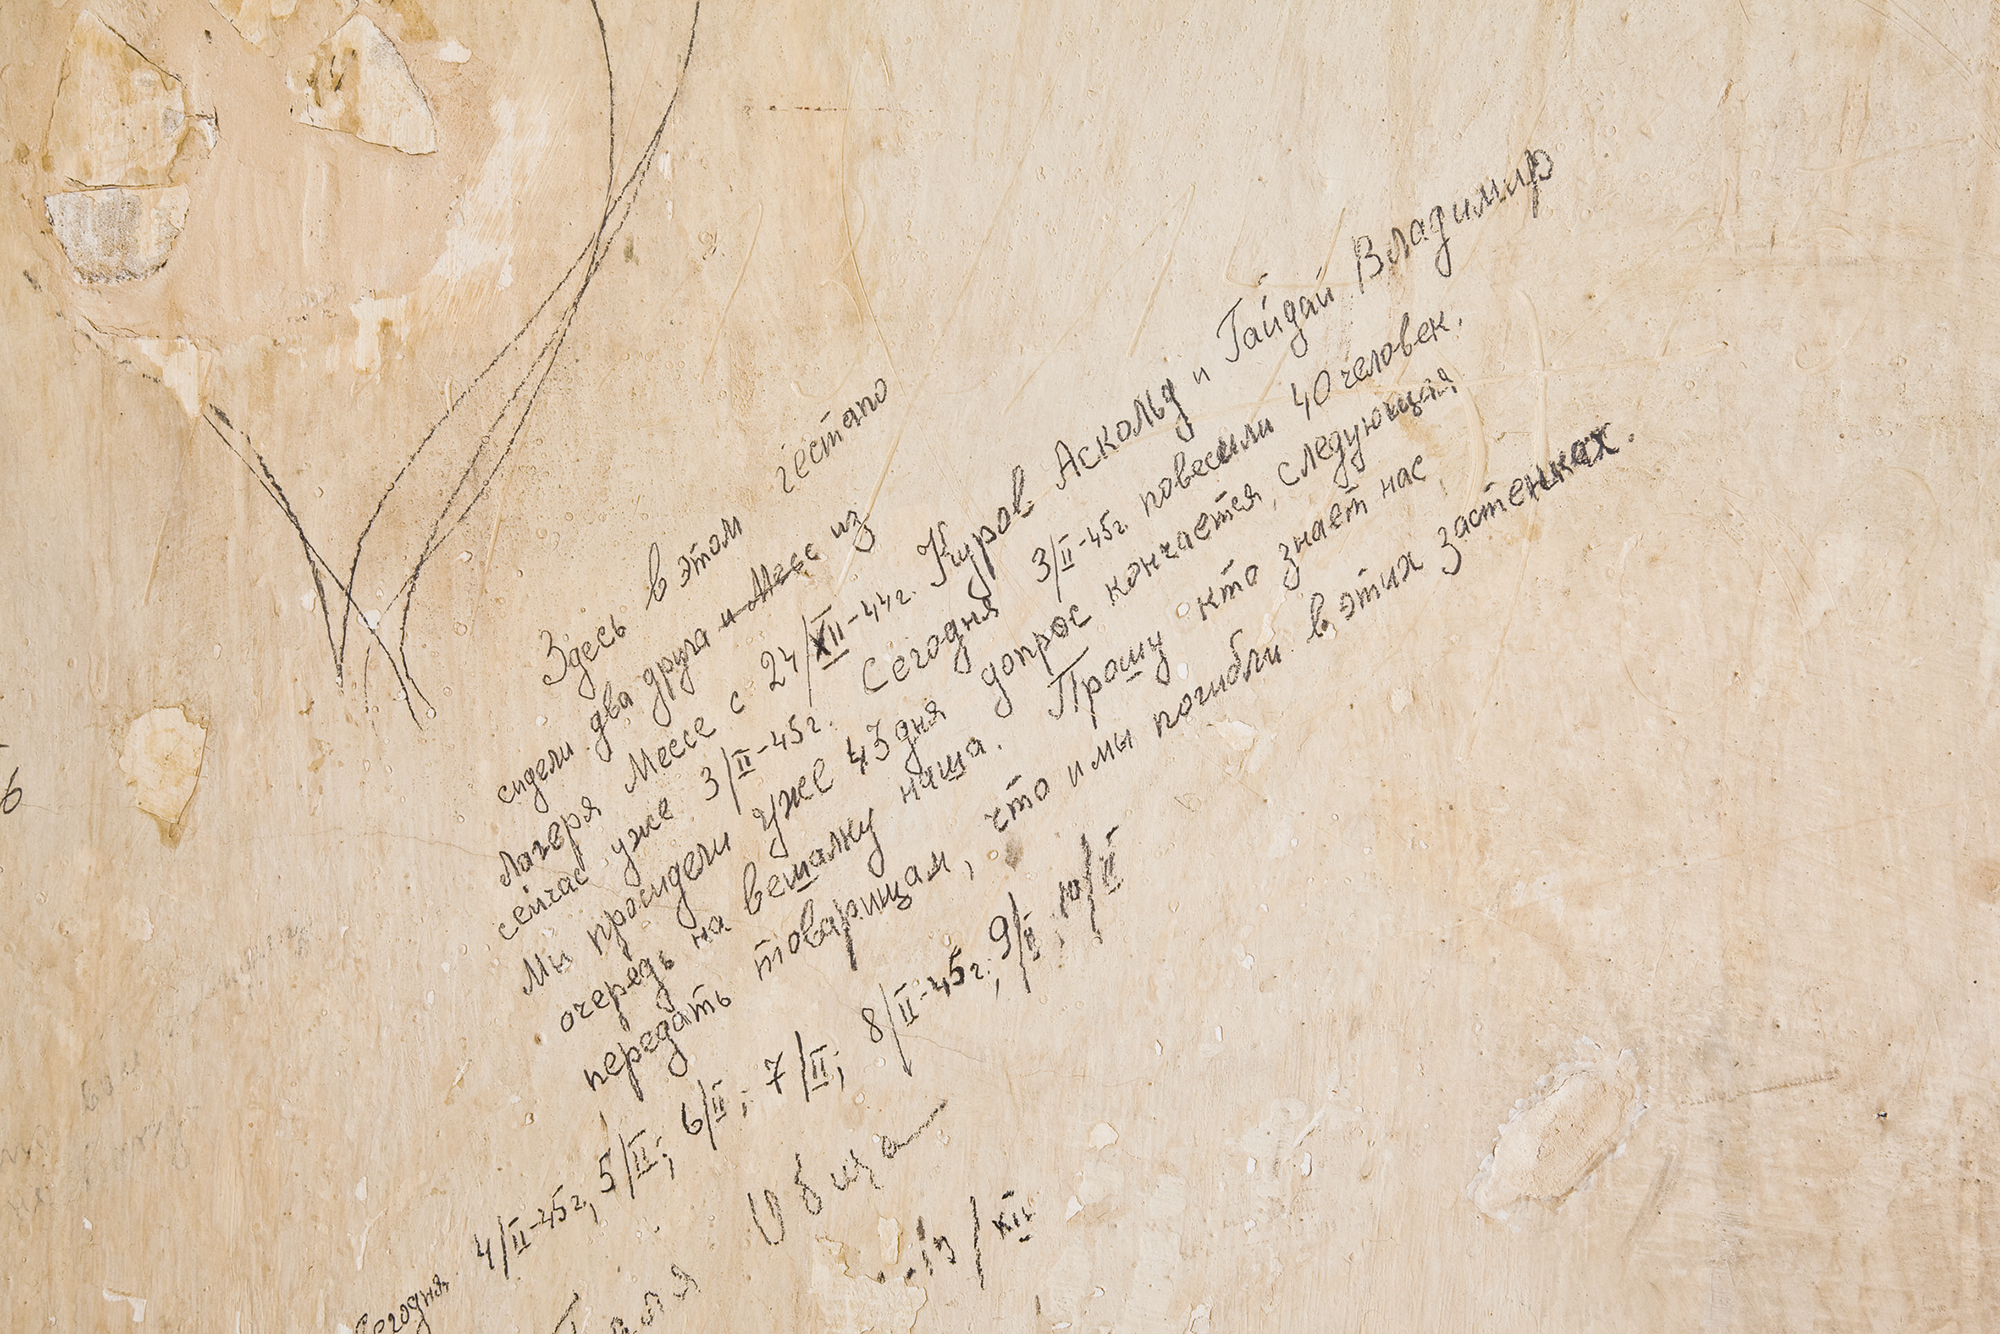 Здесь в этом гестапо
сидели два друга и Месс из
лагеря Мессе с 24/XII-44г. Куров Аскольд и Гайдай Владимир
сейчас уже 3/II-45г. Сегодня 3/II-45г. повесили 40 человек.
Мы просидели уже 43 дня допрос кончается, следующая
очередь на вешалку наша. Прошу кто знает нас
передать товарищам, что и мы погибли в этих застенках.
Сегодня 4/II-45г, 5/II; 6/II; 7/II; 8/II-45г; 9/II; 10/II